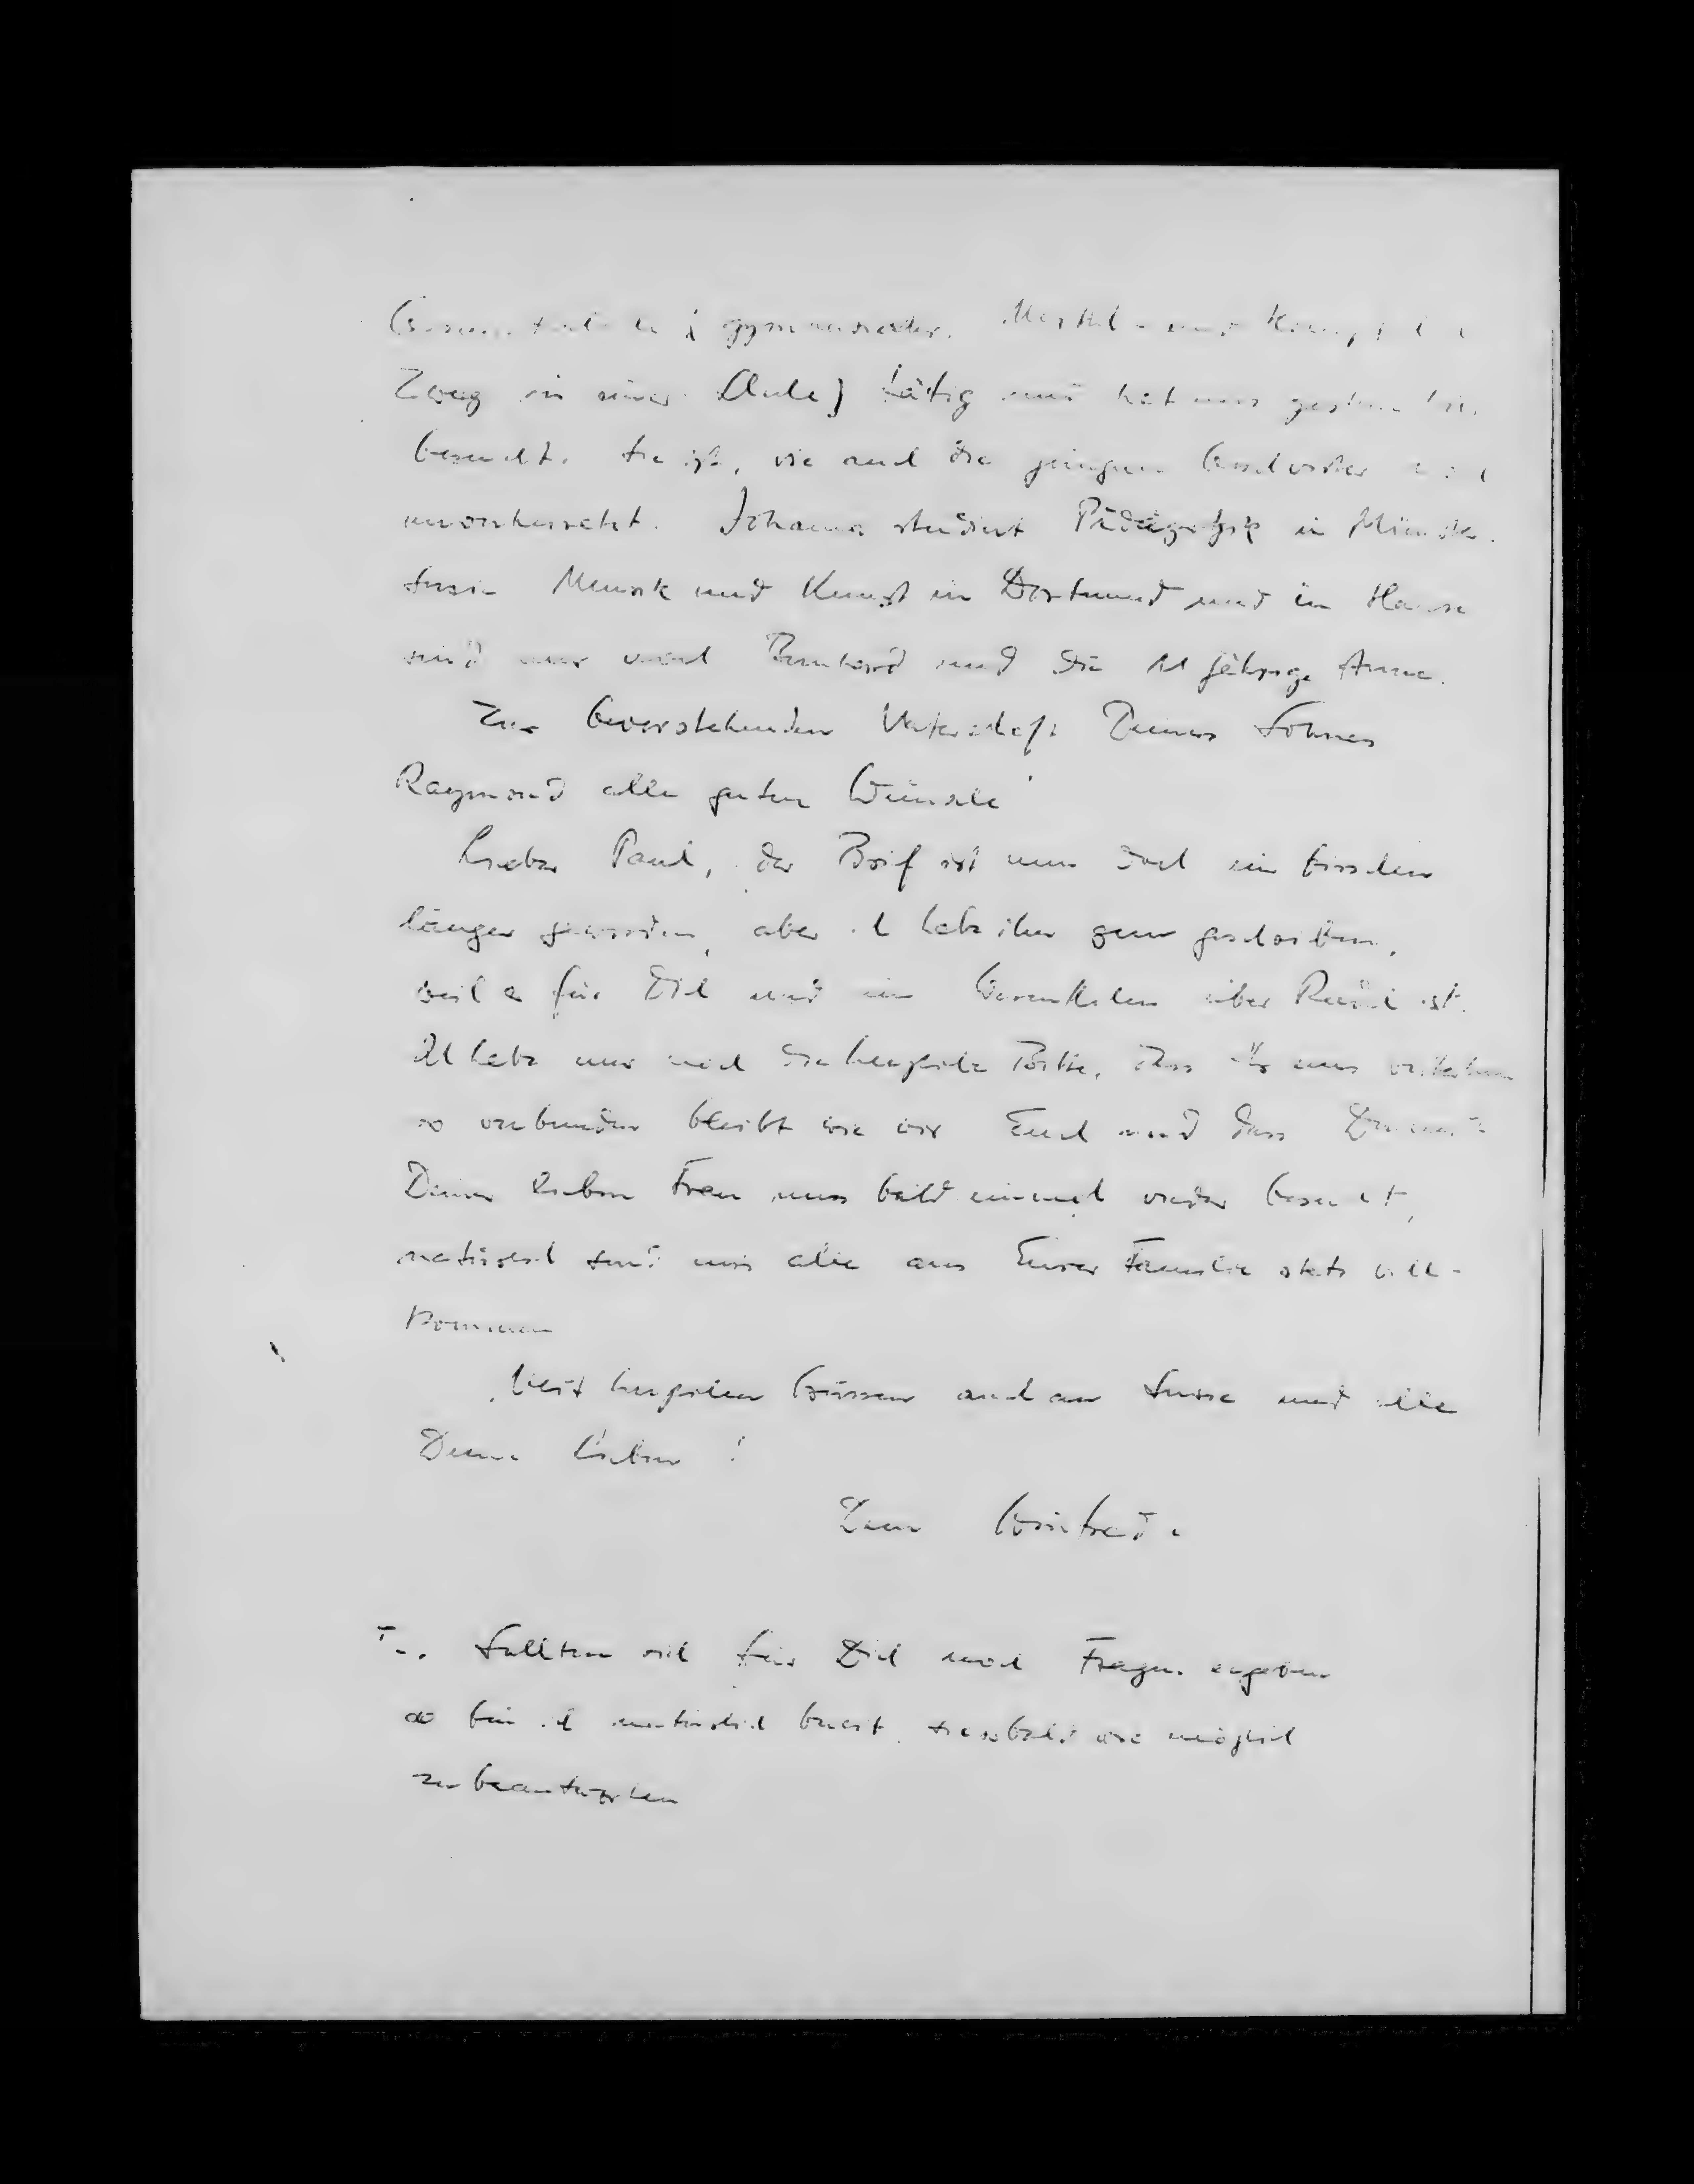 Gesamtschule ( gymnasialer. Musikal. und
Zweig in einer Aula) tätig und hat uns gestern
besucht. Sie ist, wie auch die jüngeren Geschwister noch
unverheiratet. Johanna studiert Pädagogik in Münster.
Susie Musik und Kunst in Dortmund und im Hause
sind nur noch Bernhard und die 11 jährige Anne.
Zur bevorstehenden Vaterschaft Deines Sohnes
Raymond alle guten Wünsche!
Lieber Paul, der Brief ist nun doch ein bisschen
länger geworden, aber ich habe ihn gern geschrieben,
weil er für Dich und ein Gedenken über Rudi ist.
Ich habe nur noch die herzliche Bitte, dass Ihr uns weiterhin
so verbunden bleibt wie wir Euch und dass Du mit
Deiner lieben Frau uns bald einmal wieder besucht,
natürlich sind uns alle aus Eurer Familie stets will-
kommen
Mit herzlichen Grüssen auch an Susie und alle
Deine Lieben!
Dein Winfried.
Sollten sich für Dich noch Fragen ergeben
so bin ich natürlich bereit, sie sobald wie möglich
zu beantworten